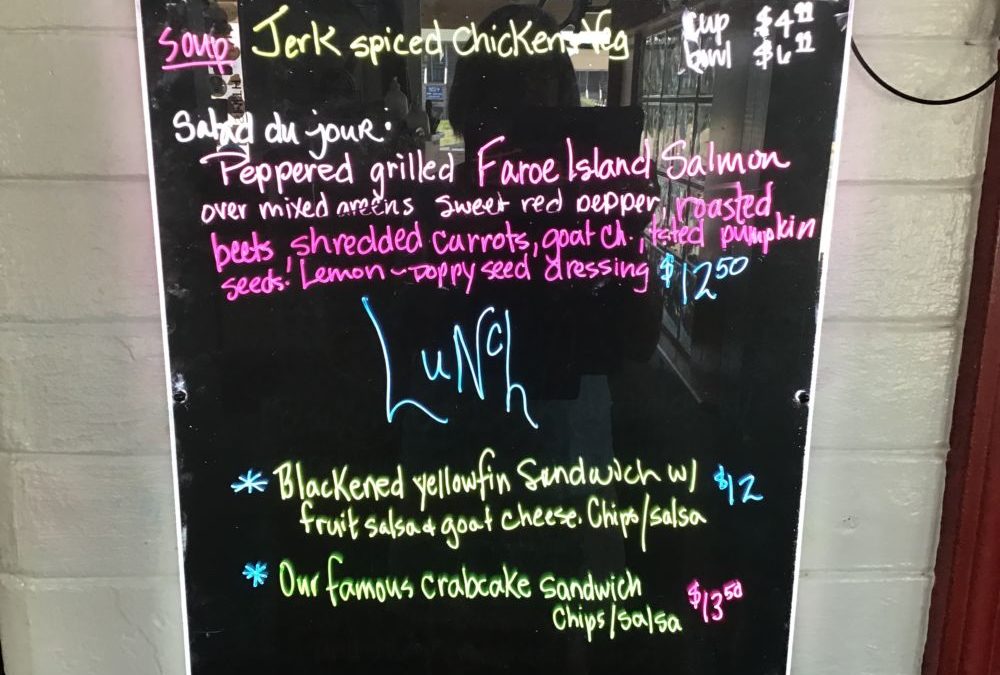 Soup Jerk spiced chicken & Veg cup $4.99
bowl $6.99
Salad du jour.
Peppered grilled Faroe Island Salmon
over mixed greens sweet red pepper, roasted
beets, shredded carrots, goat ch., tsted pumpkin
seeds! Lemon-poppy seed dressing $12.50
LuNch
* Blackened yellowfin Sandwich w/ $12
fruit salsa & goat cheese. Chips/salsa
* Our famous crabcake sandwich $13.50
Chips/salsa